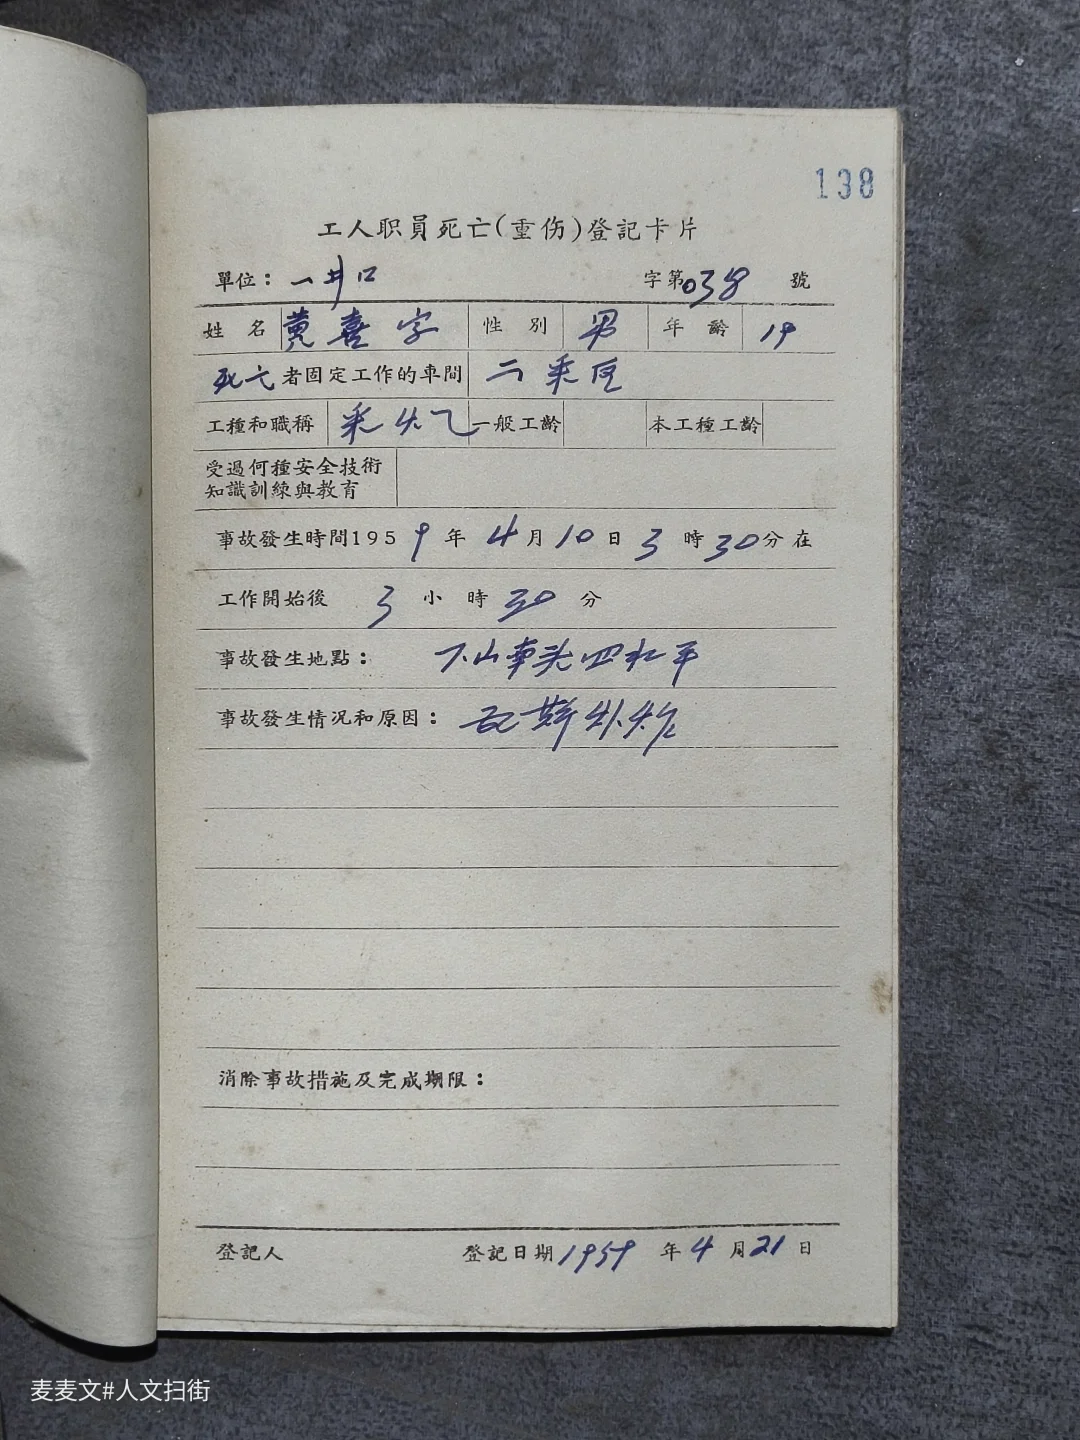 138
工人职員死亡(重伤)登記卡片
單位：一井口 字第038號
姓名 黄喜字 性別 男 年齡 19
死亡者固定工作的車間 二采区
工種和職稱 采 一般工齡 本工種工齡
受過何種安全技術
知識訓練與教育
事故發生時間1959年4月10日3時30分在
工作開始後 3小時30分
事故發生地點：下山車头四水平
事故發生情况和原因：瓦斯
消除事故措施及完成期限：
登記人 登記日期1959年4月21日
麦麦文#人文扫街